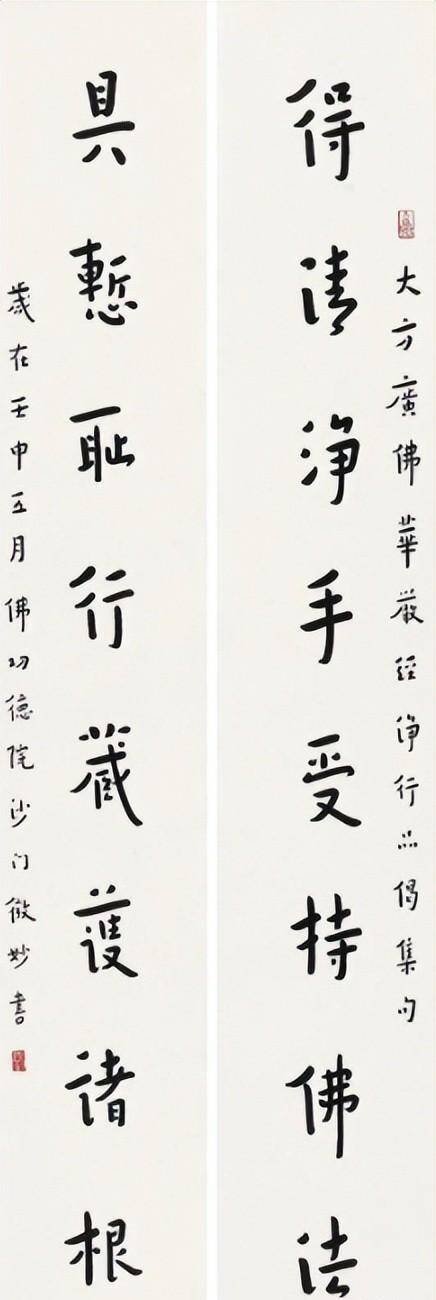 大方廣佛華嚴經淨行品偈集句
得清淨手受持佛法
具慙恥行藏護諸根
歲在壬申五月佛功德院沙门微妙書